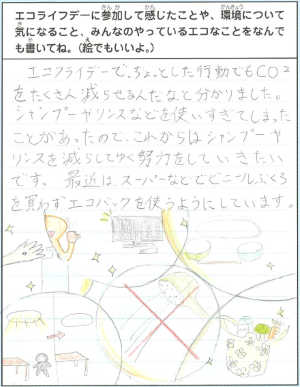 エコライフデーに参加して感じたことや、環境について
気になること、みんなのやっているエコなことをなんで
も書いてね。(絵でもいいよ。)
エコフライデーで、ちょっとした行動でもCO2
をたくさん減らせるんだなと分かりました。
シャンプーやリンスなどを使いすぎてしまった
ことがあったので、これからはシャンプーや
リンスを減らしてゆく努力をしていきたい
です。最近は、スーパーなどでビニールぶくろ
を買わずエコバックを使うようにしています。